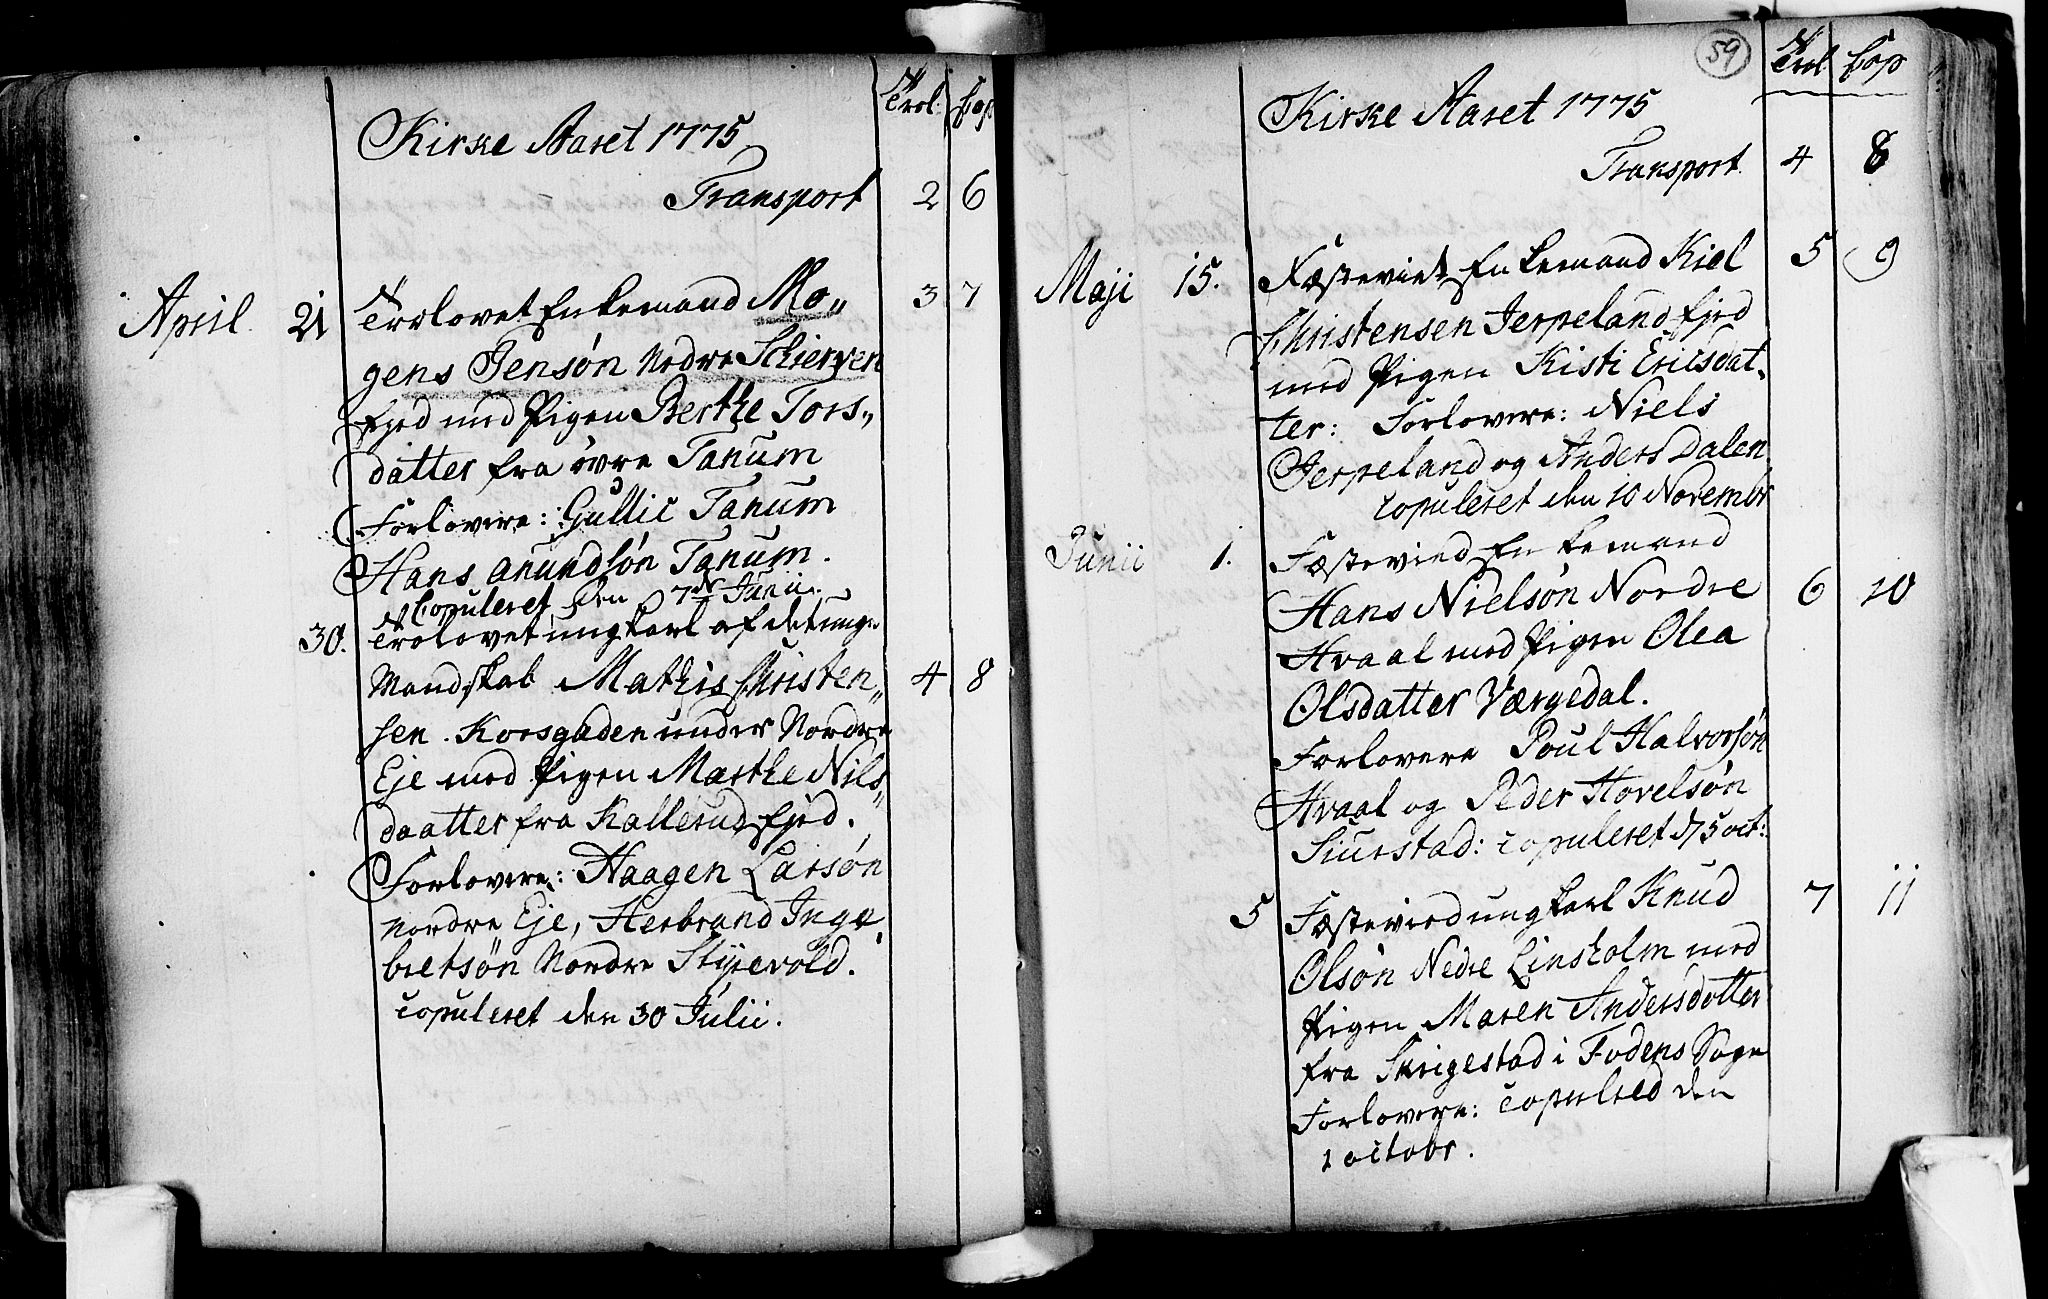 Trol: Cop
Kirke Aaret 1775
Transport 2 6
April 21 Trolovet Enkemand Mo„ 3 7
gens Jensøn Nedre Schierven
fjrd med Pigen Berthe Tors„
datter fra øvre Tanum
Forlovere: Gullic Tanum
Hans Anundsøn Tanum.
Copuleret den 7de Junii.
30. Trolovet ungkarl af det unge
Mandskab Mathis Christen„ 4 8
sen Korsgaden under Nordre
Eje med Pigen Marthe Nils„
daatter fra Kallerud fjrd.
Forlovere: Haagen Larsøn
Nordre Eje, Herbrand Inge
bretsøn Nordre Styrvold.
copuleret den 30 Julii.
59
Trol Cop
Kirke Aaret 1775
Transport 4 8
Maji 15. Fæsteviet Enkemand Kiel 5 9
Christensen Jerpeland fjrd
med Pigen Kisti Ericsdat„
ter: Forlovere: Niels
Jerpeland og Anders Dalen
copuleret den 10 Novembr
Junii 1. Fæstevied Enkemand
Hans Nielsøn Nordre 6 10
Hvaal med Pigen Olea
Olsdatter Værgedal.
Forlovere Poul Halvorsøn
Hvaal og Peder Hovelsøn
Siurstad: copuleret d 5 oct:
5 Fæstevied ungkarl Knud 7 11
Olsøn Nedre Linsholm med
Pigen Maren Andersdotter
fra Skrigestad i Fodens Sogn
Forlovere: copuleed den
1 octobr.